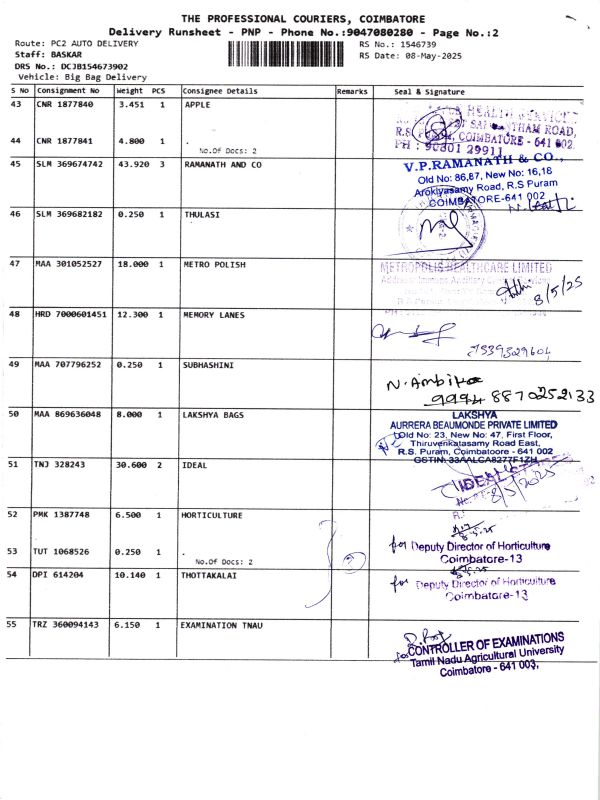 THE PROFESSIONAL COURIERS, COIMBATORE
Delivery Runsheet - PNP - Phone No.:9047080280 - Page No.:2
Route: PC2 AUTO DELIVERY RS No.: 1546739
Staff: BASKAR RS Date: 08-May-2025
DRS No.: DCJB154673902
Vehicle: Big Bag Delivery
S No Consignment No Weight PCS Consignee Details Remarks Seal & Signature
43 CNR 1877840 3.451 1 APPLE
44 CNR 1877841 4.800 1 .
No.Of Docs: 2
R.S. PURAM, COIMBATORE - 641 002.
PH : 90801 29911
45 SLM 369674742 43.920 3 RAMANATH AND CO
V.P.RAMANATH & CO.,
Old No: 86,87, New No: 16,18
Arokiyasamy Road, R.S Puram
COIMBATORE-641 002
46 SLM 369682182 0.250 1 THULASI
47 MAA 301052527 18.000 1 METRO POLISH
METROPOLIS HEALTHCARE LIMITED
8/5/25
48 HRD 7000601451 12.300 1 MEMORY LANES
7539329604
49 MAA 707796252 0.250 1 SUBHASHINI
N. Ambika
9994 8870252133
50 MAA 869636048 8.000 1 LAKSHYA BAGS
LAKSHYA
AURRERA BEAUMONDE PRIVATE LIMITED
Old No: 23, New No: 47, First Floor,
Thiruvenkatasamy Road East,
R.S. Puram, Coimbatoore - 641 002
GSTIN: 33AALCA8277F1ZH
51 TNJ 328243 30.600 2 IDEAL
IDEAL
8/5/2025
52 PMK 1387748 6.500 1 HORTICULTURE
8.5.25
53 TUT 1068526 0.250 1 .
No.Of Docs: 2
for Deputy Director of Horticulture
Coimbatore-13
54 DPI 614204 10.140 1 THOTTAKALAI
8.5.25
for Deputy Director of Horticulture
Coimbatore-13
55 TRZ 360094143 6.150 1 EXAMINATION TNAU
for CONTROLLER OF EXAMINATIONS
Tamil Nadu Agricultural University
Coimbatore - 641 003.